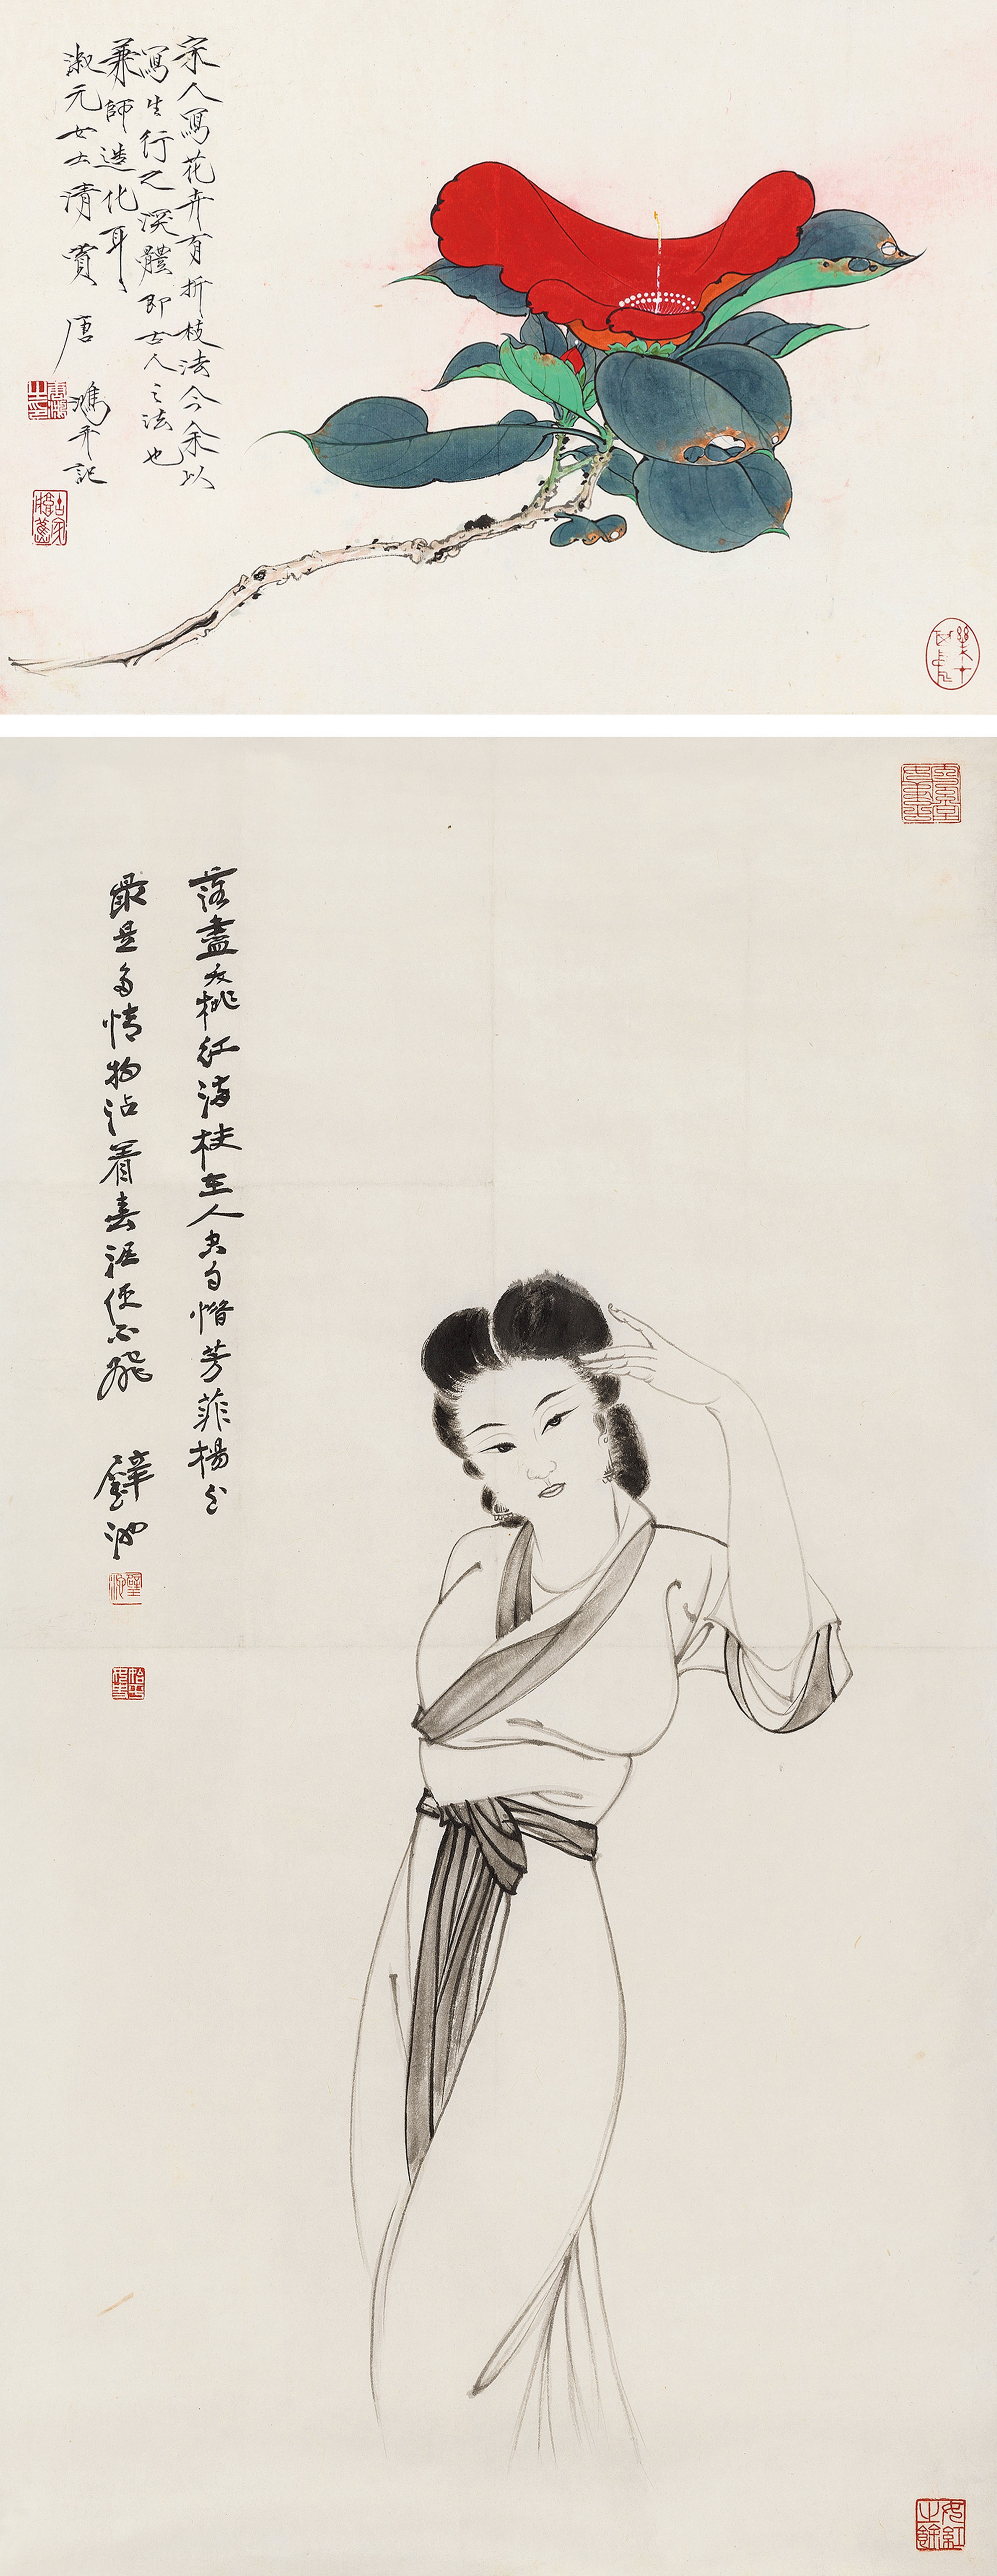 宋人寫花卉有折枝法今余以
寫生行之深體即古人之法也
兼師造化耳
淑元女士清賞 唐鴻平記
落盡夭桃紅滿枝主人空自惜芳菲楊花
最是多情物沾着春泥便不飛 璧池
璧池